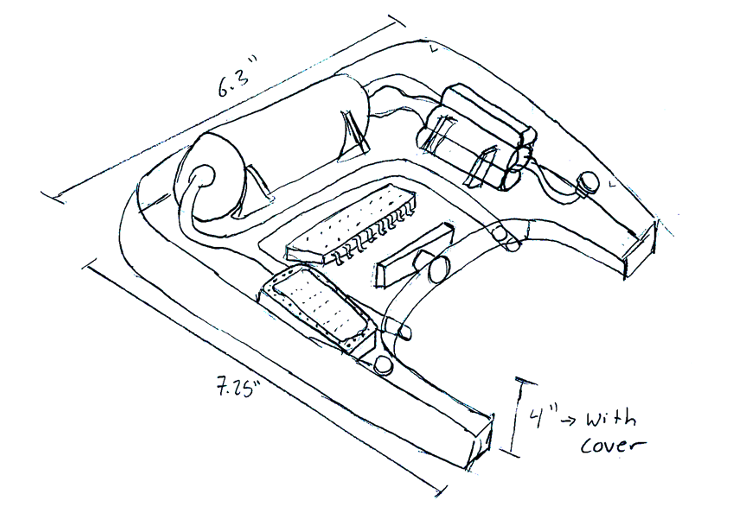 6.3"
7.25"
4" → with
cover